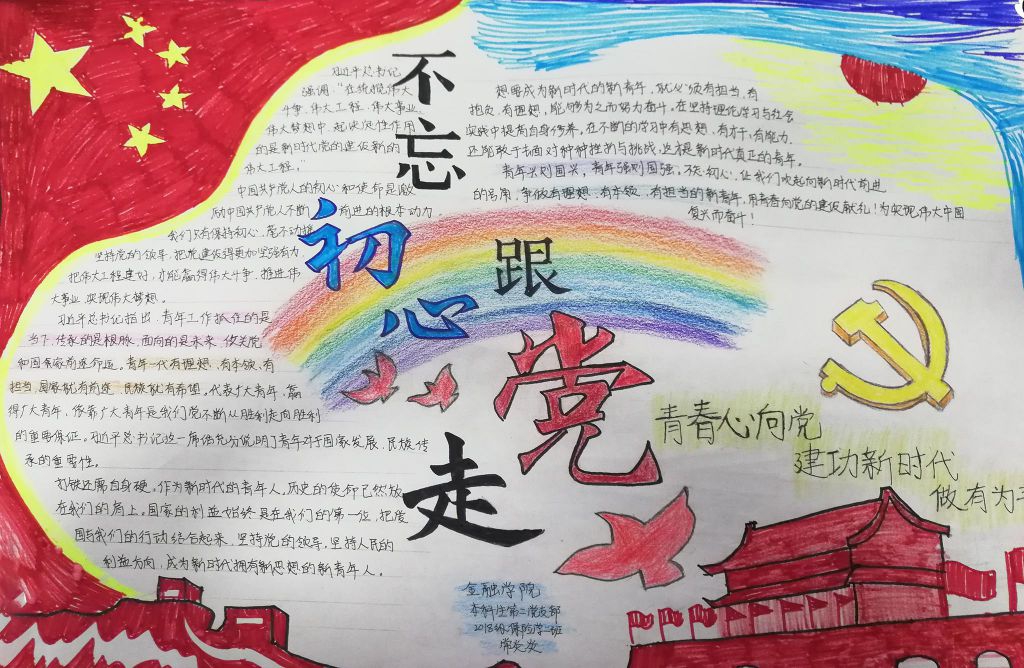 不忘
初心
跟
党
走
习近平总书记
强调:“在统揽伟大
斗争、伟大工程、伟大事业、
伟大梦想中,起决定性作用
的是新时代党的建设新的
伟大工程。”
中国共产党人的初心和使命是激
励中国共产党人不断 前进的根本动力。
我们只有保持初心、毫不动摇
坚持党的领导、把党建设得更加坚强有力
把伟大工程建好,才能赢得伟大斗争、推进伟
大事业、实现伟大梦想。
习近平总书记指出,青年工作抓住的是
当下,传承的是根脉,面向的是未来,攸关党
和国家前途命运。青年一代有理想、有本领、有
担当,国家就有前途,民族就有希望。代表广大青年,赢
得广大青年,依靠广大青年是我们党不断从胜利走向胜利
的重要保证。习近平总书记这一席话充分说明了青年对于国家发展、民族传
承的重要性。
打铁还需自身硬。作为新时代的青年人,历史的使命已然放
在我们的肩上。国家的利益始终是在我们的第一位,把爱
国与我们的行动结合起来,坚持党的领导,坚持人民的
利益方向,成为新时代拥有新思想的新青年人。
想要成为新时代的新青年,就必须有担当、有
抱负、有理想,能够为之而努力奋斗。在坚持理论学习与社会
实践中提高自身修养。在不断的学习中有思想、有才干、有能力,
还能敢于去面对种种挫折与挑战,这才是新时代真正的青年。
青年兴则国兴,青年强则国强。不忘初心,让我们吹起向新时代前进
的号角,争做有理想、有本领、有担当的新青年,用青春向党的建设献礼!为实现伟大中国
复兴而奋斗!
青春心向党
建功新时代
做有为
金融学院
本科生第二党支部
2018级保险学一班